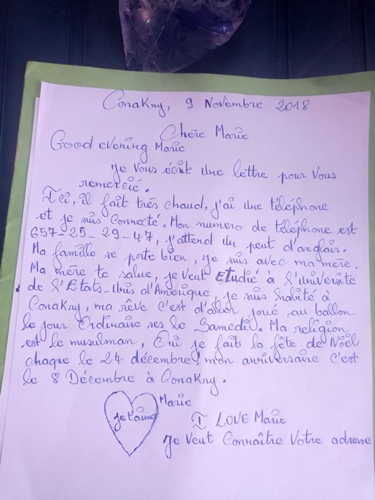 Conakry, 9 Novembre 2018
Cherie Marie
Good evening Marie
Je Vous écrit Une lettre pour Vous
remercié.
Ici, Il fait très chaud, j'ai une téléphone
et je suis Connecté. Mon numero de téléphone est
657-25-29-47, j'attend un peut d'anglais.
Ma famille se porte bien, je suis avec ma mère.
Ma mère te salue, je veut Etudié à l'université
de l'Etats-Unis d'Amérique, je suis habité à
Conakry, ma rêve c'est d'aller joué au ballon
le jour Ordinaire ses le Samedi. Ma religion
est le musulman, Oui je fait la fête de Noël
chaque le 24 décembre, mon anniversaire c'est
le 8 Décembre à Conakry.
Marie
je t'aime
I LOVE Marie
je veut Connaître Votre adresse